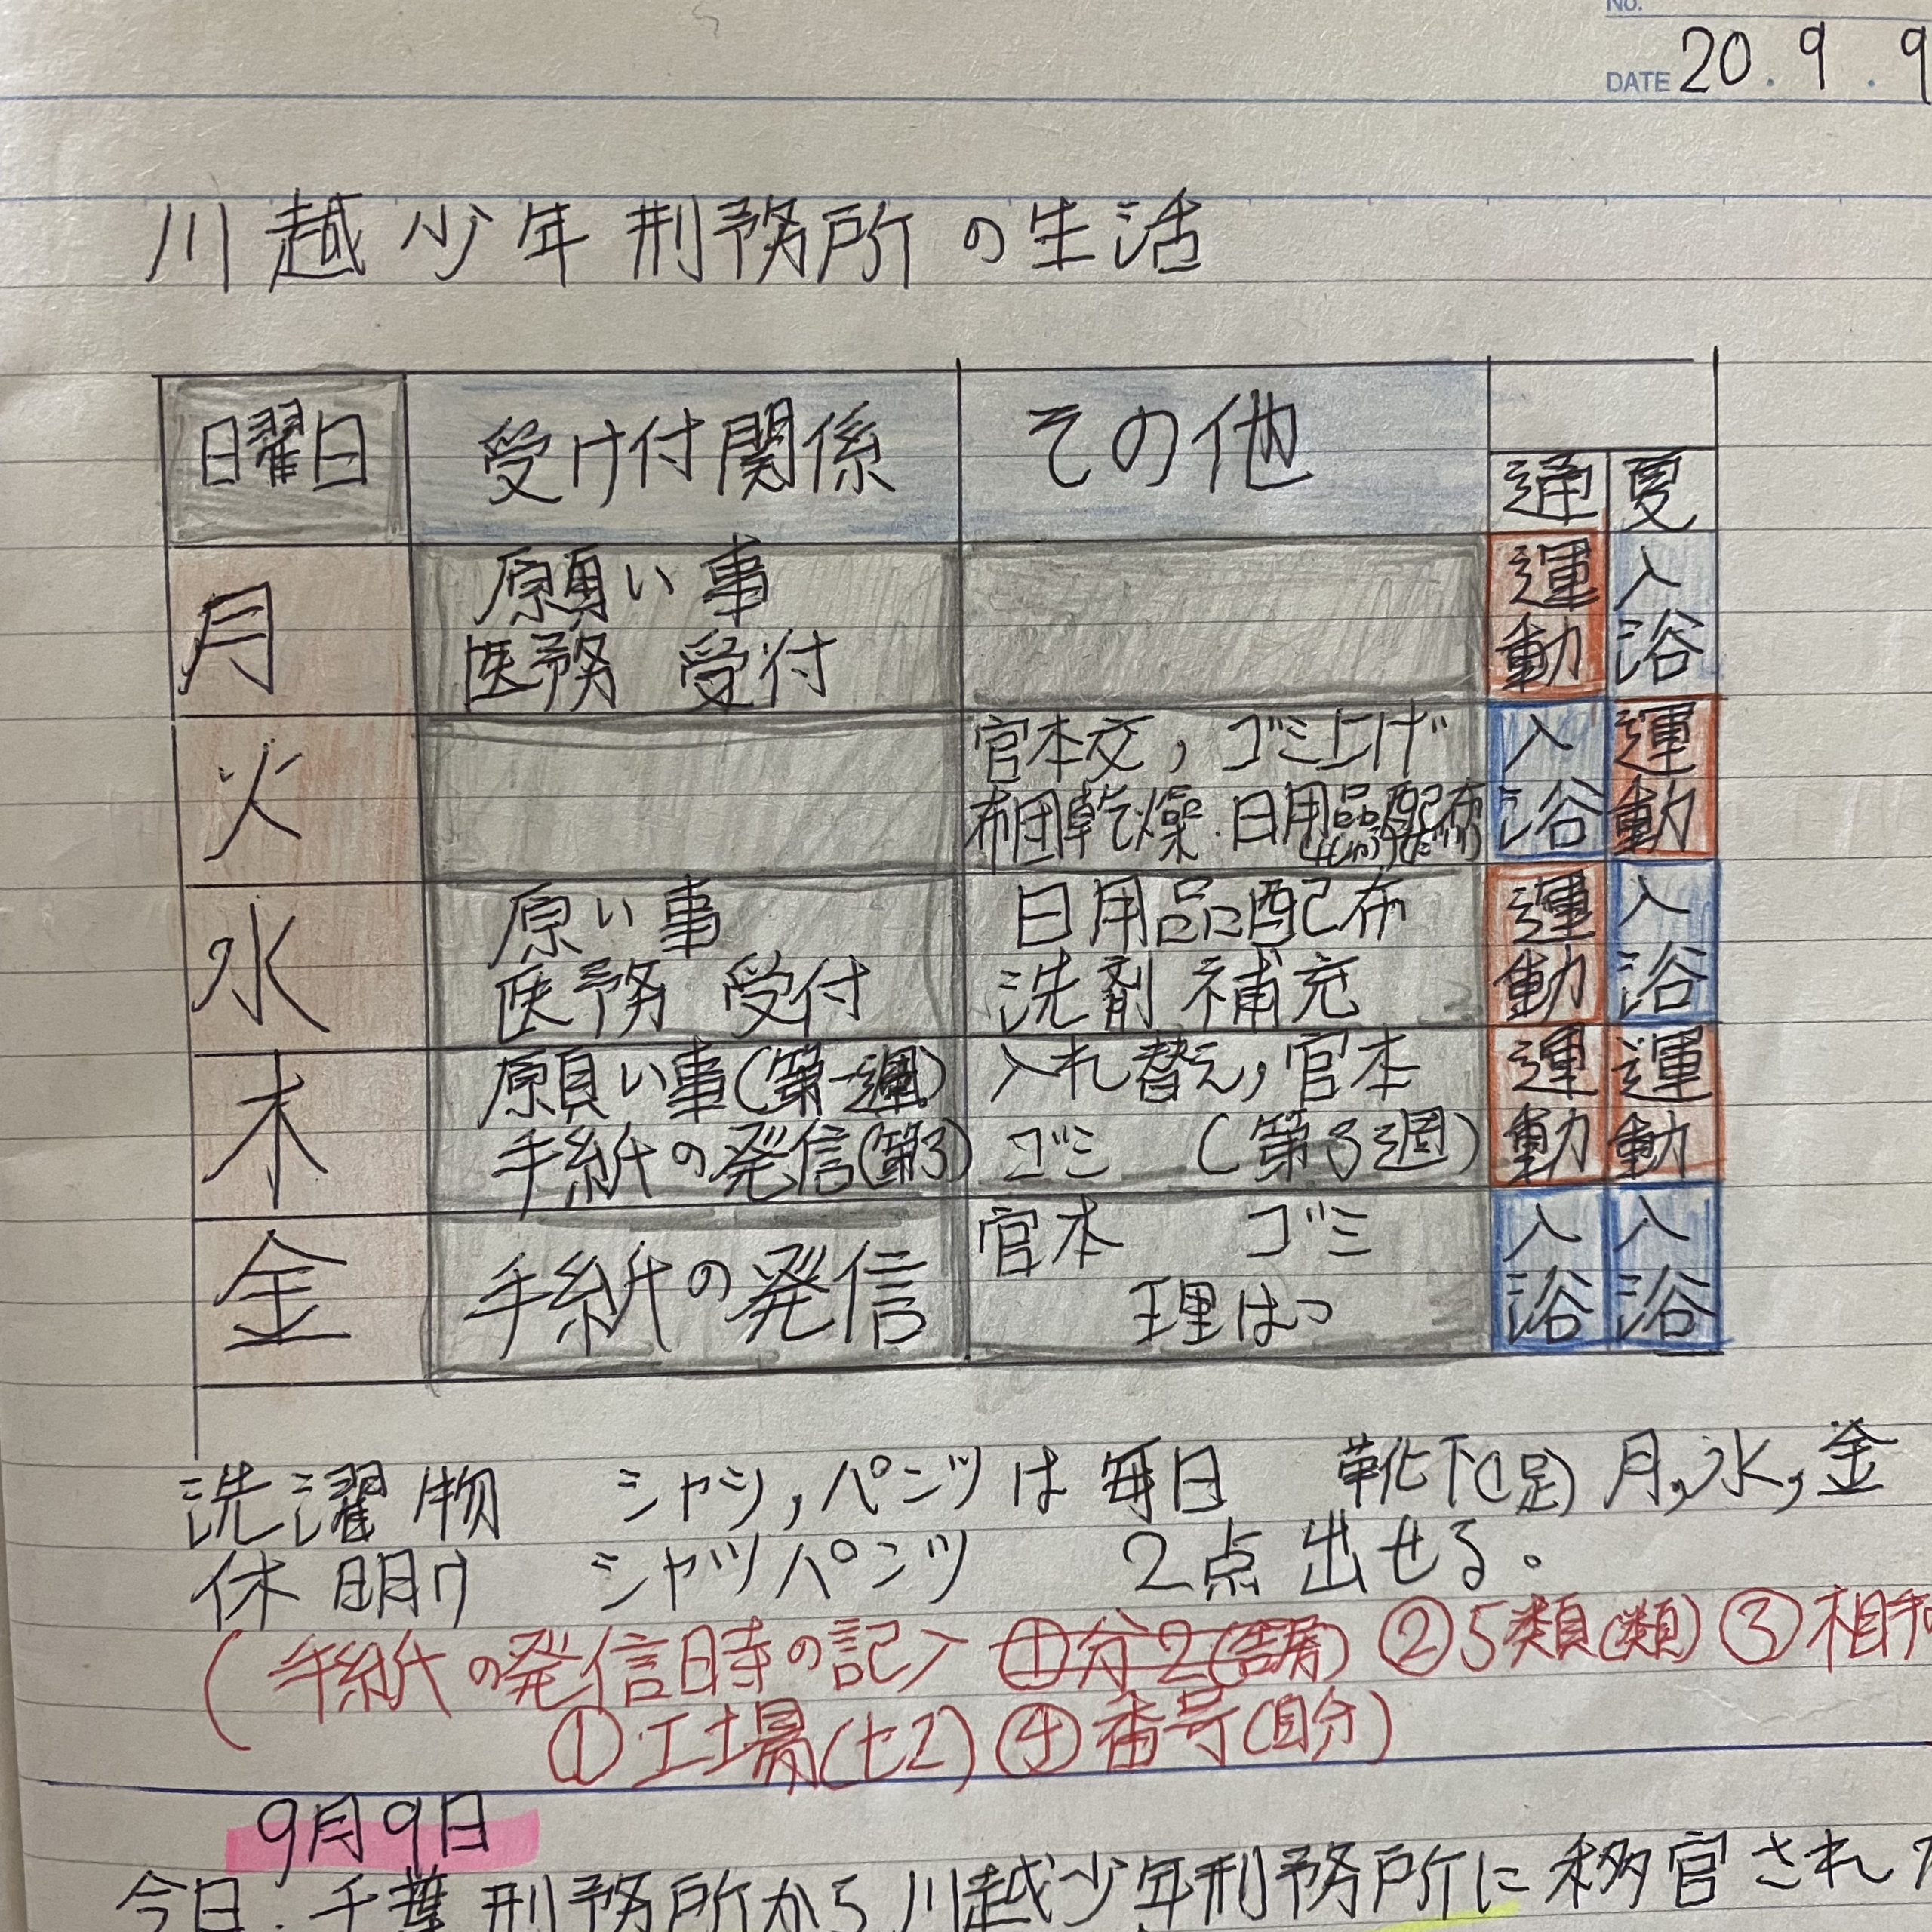 No.
DATE 20.9.9
川越少年刑務所の生活
曜日 受け付関係 その他
通 夏
月 願い事 運動 入浴
医務 受付
火 官本交, ゴミ上げ 入浴 運動
布団乾燥.日用品配布
水 願い事 日用品配布 運動 入浴
医務 受付 洗剤 補充
木 願い事(第一週) 入れ替え,官本 運動 運動
手紙の発信(第3) ゴミ (第3週)
金 手紙の発信 官本 ゴミ 入浴 入浴
理はつ
洗濯物 シャツ,パンツは毎日 靴下(1足)月,水,金
休明け シャツパンツ 2点出せる。
(手紙の発信時の記入 ②5類(類)③相手
①工場(七2)④番号(自分)
9月9日
今日.千葉刑務所から川越少年刑務所に移官された